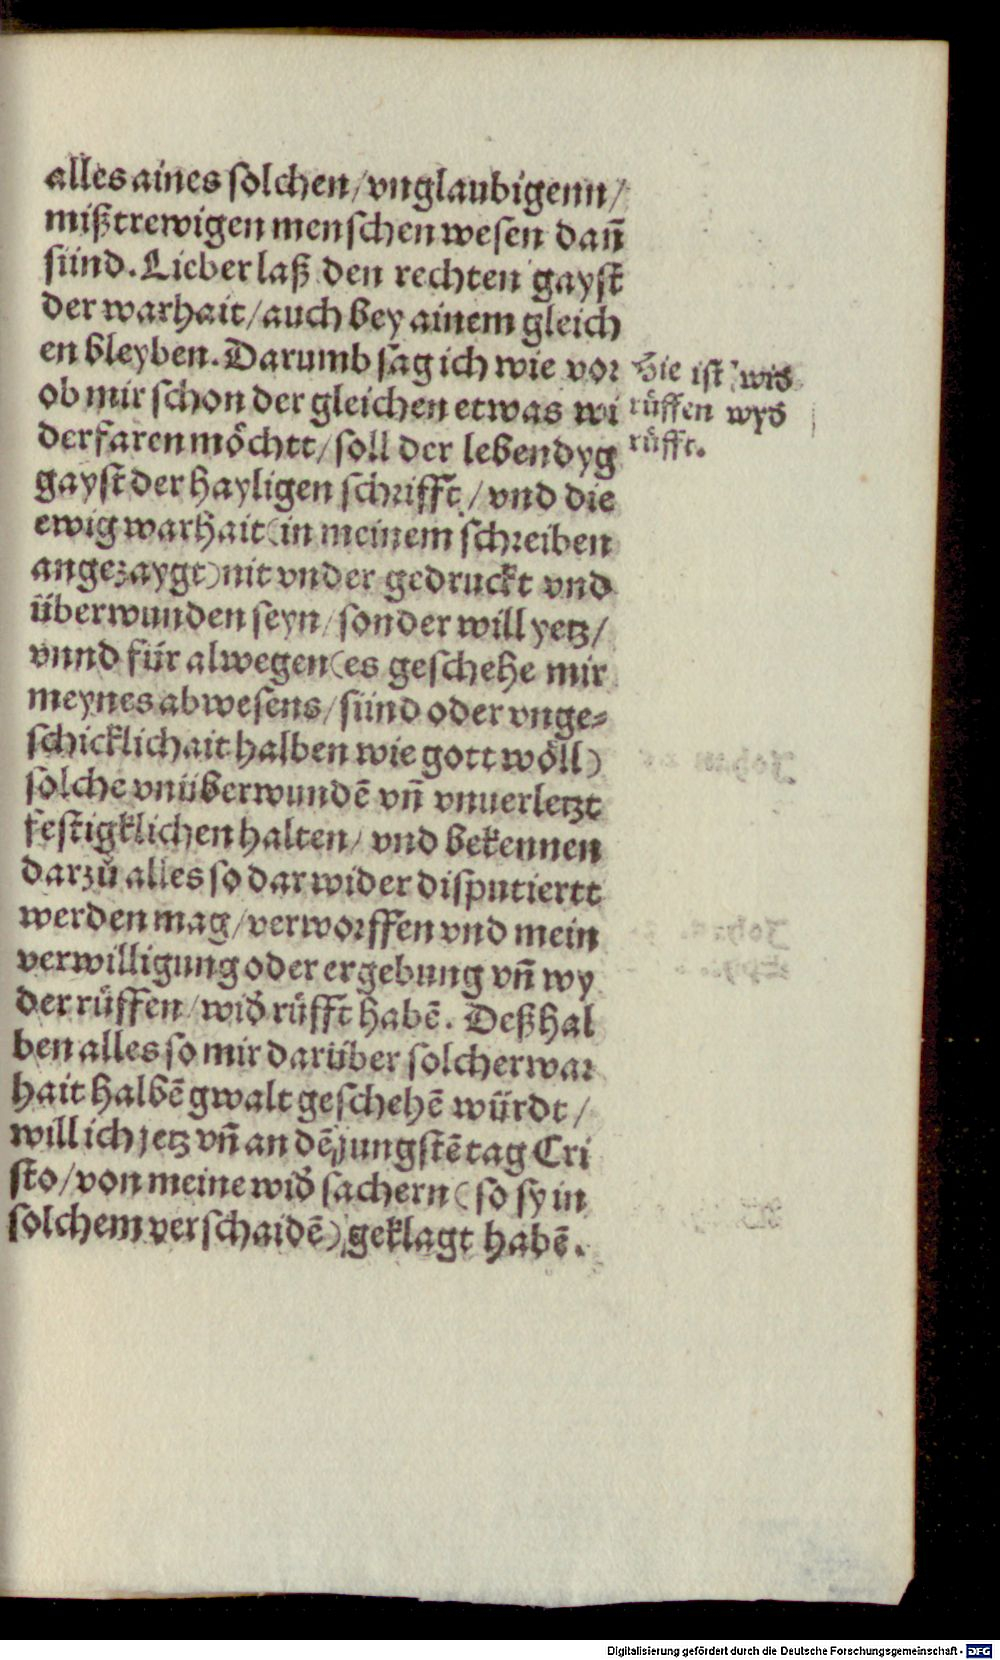 alles aines solchen/vnglaubigenn/
mißtrewigen menschen wesen dañ
sünd. Lieber laß den rechten gayst
der warhait/auch bey ainem gleich
en bleyben. Darumb sag ich wie vor
ob mir schon der gleichen etwas wi
derfaren möchtt/soll der lebendyg
gayst der hayligen schrifft/vnd die
ewig warhait(in meinem schreiben
angezaygt)nit vnder gedruckt vnd
überwunden seyn/sonder will yetz/
vnnd für alwegen(es geschehe mir
meynes abwesens/sünd oder vnge⸗
schicklichait halben wie gott wöll)
solche vnüberwundē vñ vnuerletzt
festigklichen halten/vnd bekennen
darzů alles so dar wider disputiertt
werden mag/verworffen vnd mein
verwilligung oder ergebung vñ wy
der rüffen/wid̄ rüfft habē. Deßhal
ben alles so mir darüber solcher war
hait halbē gwalt geschehē würdt/
will ich jetz vñ an dē jungstē tag Cri
sto/von meine wid̄ sachern(so sy in
solchem verschaidē)geklagt habē.
Hie ist wid̄
rüffen wyd̄
rüfft.
Digitalisierung gefördert durch die Deutsche Forschungsgemeinschaft - DFG